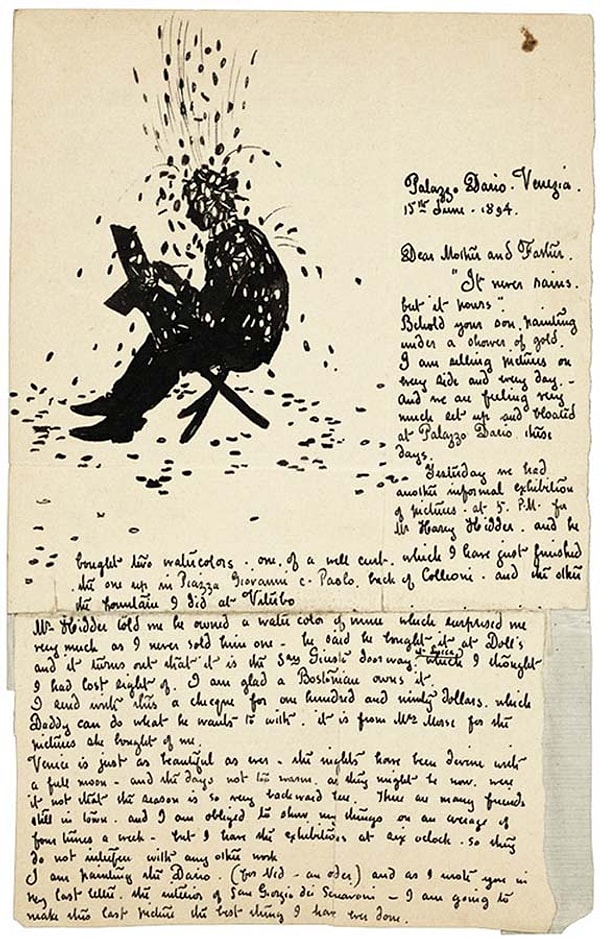 Palazzo Dario. Venezia.
15th June. 1894.
Dear Mother and Father.
"It never rains.
but it pours".
Behold your son, painting
under a shower of gold.
I am selling pictures on
every side and every day. -
and we are feeling very
much set up and bloated
at Palazzo Dario these
days.
Yesterday we had
another informal exhibition
of pictures. at 5. P.M. for
Mr Harry Kidder. and he
bought two watercolors. one. of a well curb. which I have just finished
the one up in Piazza Giovanni e Paolo. back of Colleoni. and the other
the fountain I did at Viterbo
Mr. Kidder told me he owned a water color of mine which surprised me
very much as I never sold him one - he said he bought it at Doll's
and it turns out that it is the San Giusti doorway. which I thought
I had lost sight of. I am glad a Bostonian owns it.
I send with this a cheque for one hundred and ninety dollars. which
Daddy can do what he wants to with. it is from Mrs Morse for the
pictures she bought of me.
Venice is just as beautiful as ever - the nights have been divine with
a full moon - and the days not too warm. as they might be now. were
it not that the season is so very backward here. There are many friends
still in town. and I am obliged to show my things on an average of
four times a week - but I have the exhibitions at six oclock. so they
do not interfere with any other work
I am painting the Dario. (for Ned - an oder) and as I wrote you in
my last letter. the interior of San Giorgio dei Schiavoni - I am going to
make this last picture the best thing I have ever done.